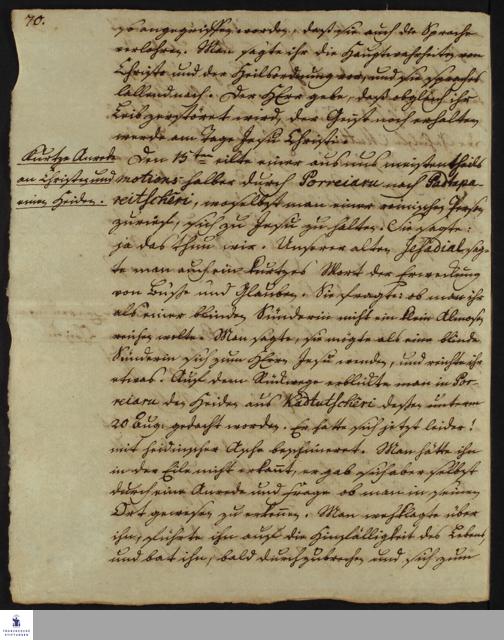 70.
so angegriffen worden, daß sie auch die Sprache
verlohren. Man sagte ihr die Hauptwahrheiten von
Christo und der Heilsordnung vor, und sie sprach es
lallend nach. Der HErr gebe, daß obgleich ihr
Leib zerstöret wird, der Geist noch erhalten
werde am Tage Jesu Christi.
Kurtze Anrede
an Christen und
einen Heiden.
Den 15ten eilte einer aus uns meistentheils
motions halber durch Porreiaru nach
reitscheri, woselbst man einer römischen Person
zuriefe, sich zu Jesu zu halten. Sie sagte:
ja das thun wir. Unserer alten Jesadial sag-
te man auch ein kurtzes Wort der Erweckung
von Buße und Glauben. Sie fragte: ob man ihr
als einer blinden Sünderin nicht ein klein Almosen
reichen wolte. Man sagte, sie mögte als eine blinde
Sünderin sich zum HErrn Jesu wenden, und reichte ihr
etwas. Auf dem Rückwege erblickte man in Por-
reiaru den Heiden aus Kadtutscheri dessen unterm
20 Aug. gedacht worden. Er hatte sich jetzt leider!
mit heidnischer Asche beschmieret. Man hätte ihn
in der Eile nicht erkannt, er gab sich aber selbst
durch eine Anrede und Frage ob man in seinem
Ort gewesen zu erkennen. Man wehklagte über
ihn, führte ihn auf die Hinfälligkeit des Lebens,
und bat ihn, bald durchzubrechen und sich zum
FRANCKESCHE
STIFTUNGEN